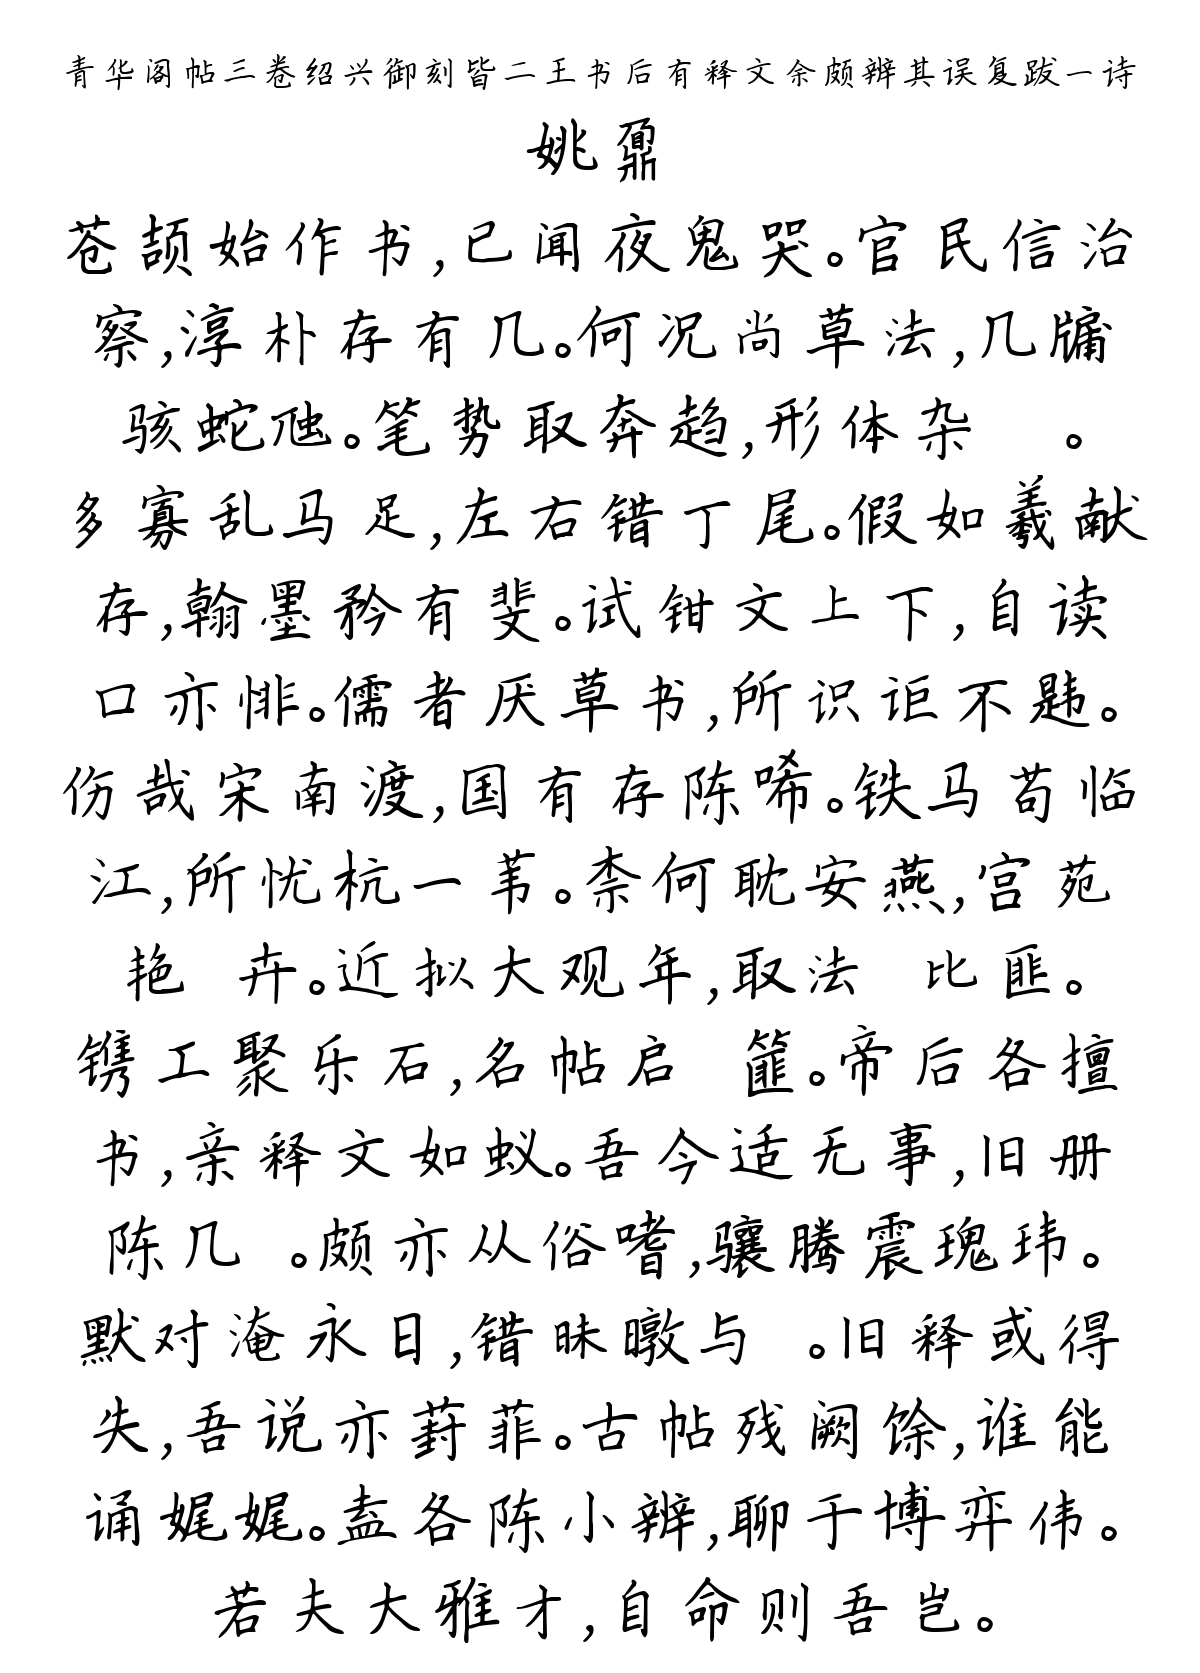 青华阁帖三卷绍兴御刻皆二王书后有释文余颇辨其误复跋一诗
姚鼐
苍颉始作书,已闻夜鬼哭。官民信治
察,淳朴存有几。何况尚草法,几牖
骇蛇虺。笔势取奔趋,形体杂 。
多寡乱马足,左右错丁尾。假如羲献
存,翰墨矜有斐。试钳文上下,自读
口亦悱。儒者厌草书,所识讵不韪。
伤哉宋南渡,国有存陈唏。铁马苟临
江,所忧杭一苇。柰何耽安燕,宫苑
艳 卉。近拟大观年,取法 比匪。
镌工聚乐石,名帖启 篚。帝后各擅
书,亲释文如蚁。吾今适无事,旧册
陈几 。颇亦从俗嗜,骧腾震瑰玮。
默对淹永日,错昧暾与 。旧释或得
失,吾说亦葑菲。古帖残阙馀,谁能
诵娓娓。盍各陈小辨,聊于博弈伟。
若夫大雅才,自命则吾岂。